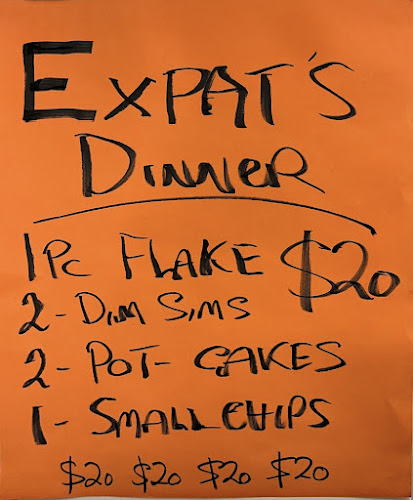 EXPAT'S
DINNER
1PC FLAKE $20
2 - DIM SIMS
2 - POT - CAKES
1 - SMALL CHIPS
$20 $20 $20 $20